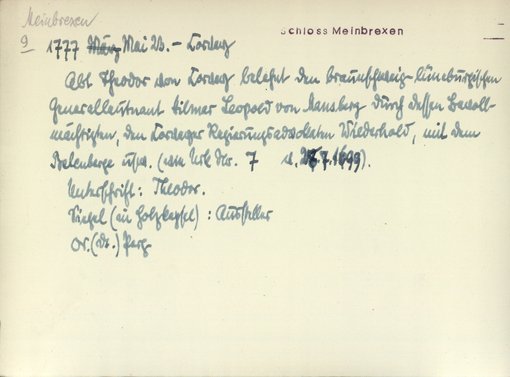 Meinbrexen
Schloss Meinbrexen
9
1777 März Mai 23. – Corvey
Abt Theodor von Corvey belehnt den braunschweig-lüneburgischen
Generalleutnant Hilmer Leopold von Mansberg durch dessen Bevoll-
mächtigten, den Corveyer Regierungsadvokaten Wiederhold, mit dem
usw. (wie Urk. Nr. 7 v. 7.1699).
Unterschrift: Theodor.
Siegel (in Holzkapsel): Aussteller
Or. (dt.) Perg.